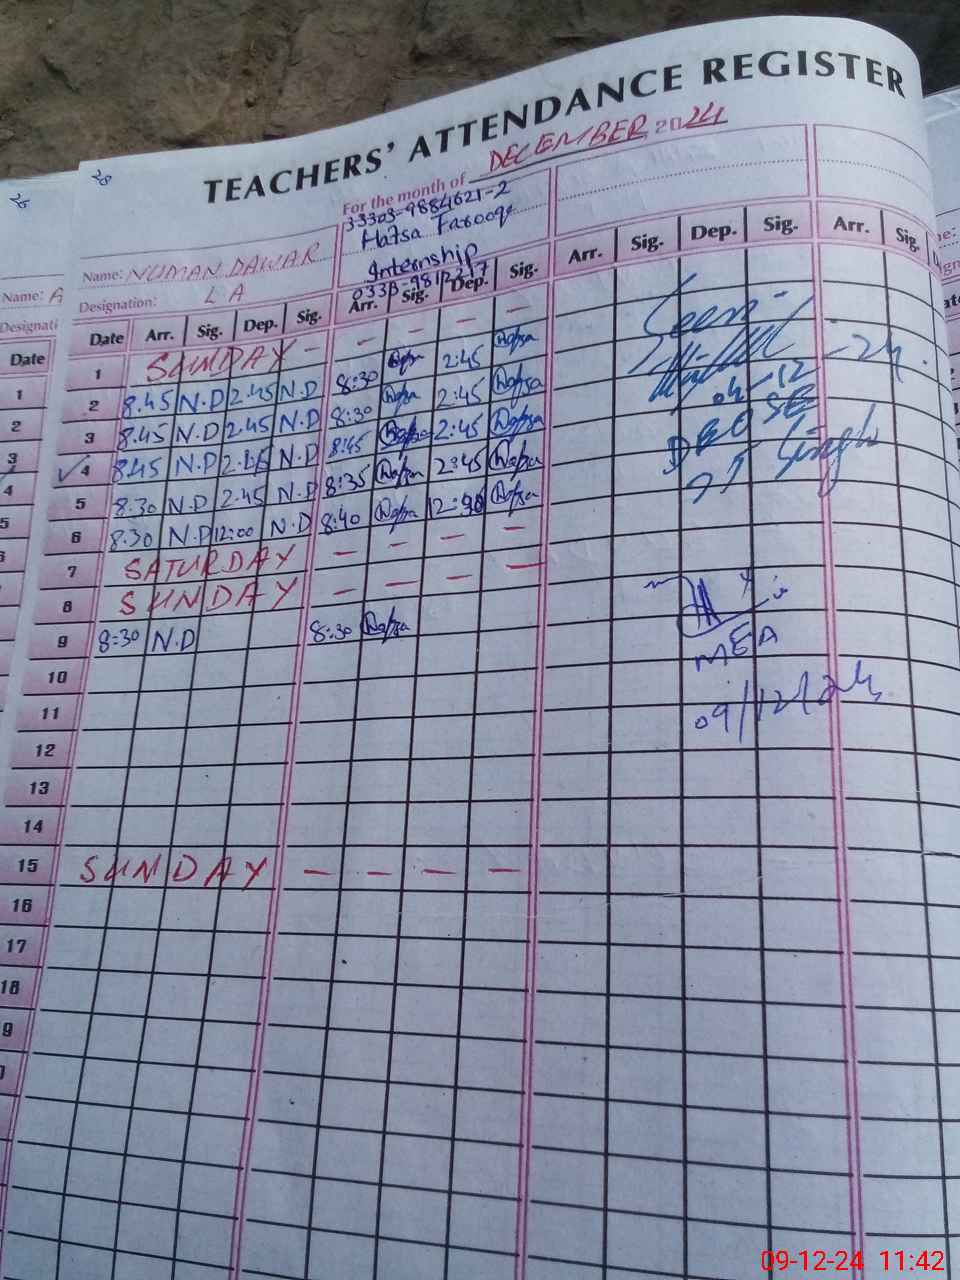 TEACHERS' ATTENDANCE REGISTER
For the month of DECEMBER 2024
33303-9884621-2
Hafsa Farooqe
Name: NUMAN DAWAR
Internship
Designation: L A
Date Arr. Sig. Dep. Sig. Arr. Sig. Dep. Sig. Arr. Sig. Dep. Sig. Arr. Sig.
1 SUNDAY - - - - -
2 8.45 N.D 2.45 N.D 8:30 Hafsa 2:45 Hafsa
3 8.45 N.D 2.45 N.D 8:30 Hafsa 2:45 Hafsa
4 8.45 N.D 2.45 N.D 8:45 Hafsa 2:45 Hafsa
5 8.30 N.D 2.45 N.D 8:35 Hafsa 2:45 Hafsa
6 8.30 N.D 12:00 N.D 8:40 Hafsa Hafsa
7 SATURDAY - - - -
8 SUNDAY - - - -
9 8:30 N.D 8:30 Hafsa
10
11
12
13
14
15 SUNDAY - - - -
16
17
18
Seen
04-12-24.
DEO SE
MEA
09/12/24
Name: A
Designati
Date
1
2
3
4
5
6
09-12-24 11:42